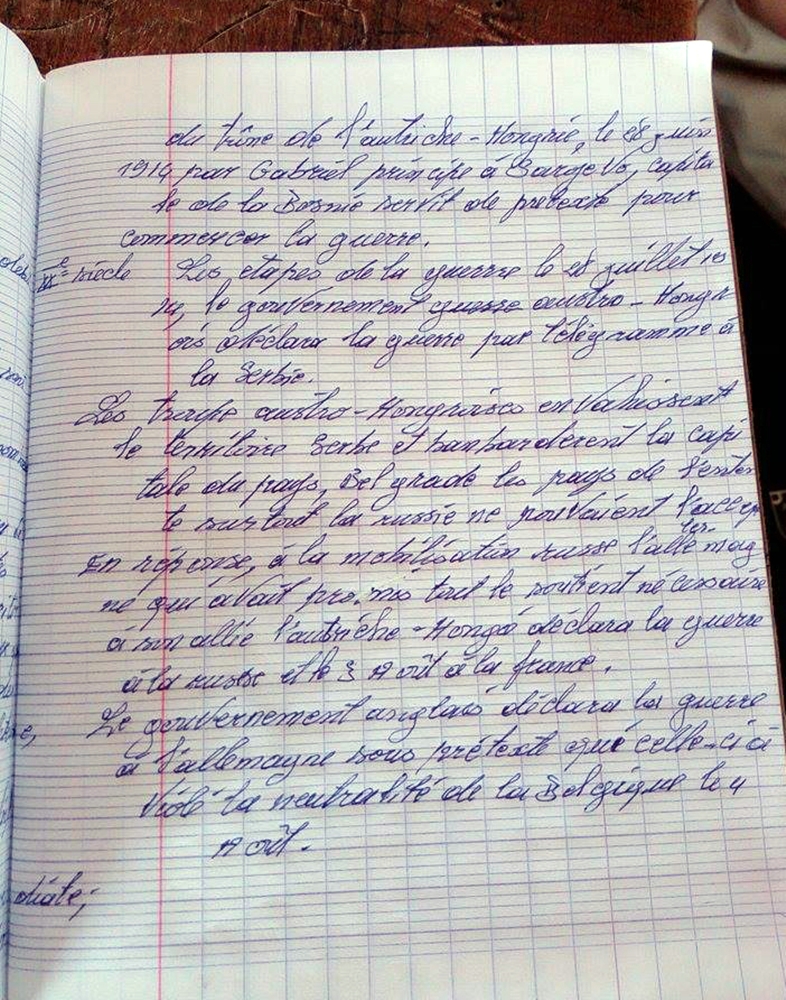 du trône de l'autriche-Hongrie, le 28 juin
1914 par Gabriel principe à Sarajevo, capita
le de la Bosnie servit de pretexte pour
commencer la guerre.
XXe siècle Les etapes de la guerre le 28 juillet 19
14, le gouvernement guesse austro-Hongr
ois déclara la guerre par télégramme à
la Serbie.
Les troupe austro-Hongraises envahissent
le territoire Serbe et banbarderent la capi
tale du pays, Belgrade les pays de l'enten
te surtout la russie ne pouvaient l'accep
ter.
En réponse, à la mobilisation russe l'allemag
ne qui avait promis tout le soutient nécessaire
à son allié l'autriche-Hongrie déclara la guerre
à la russe et le 3 Août à la france.
Le gouvernement anglais déclara la guerre
à l'allemagne sous prétexte que celle-ci a
violé la neutralité de la Belgique le 4
Août.
diate,